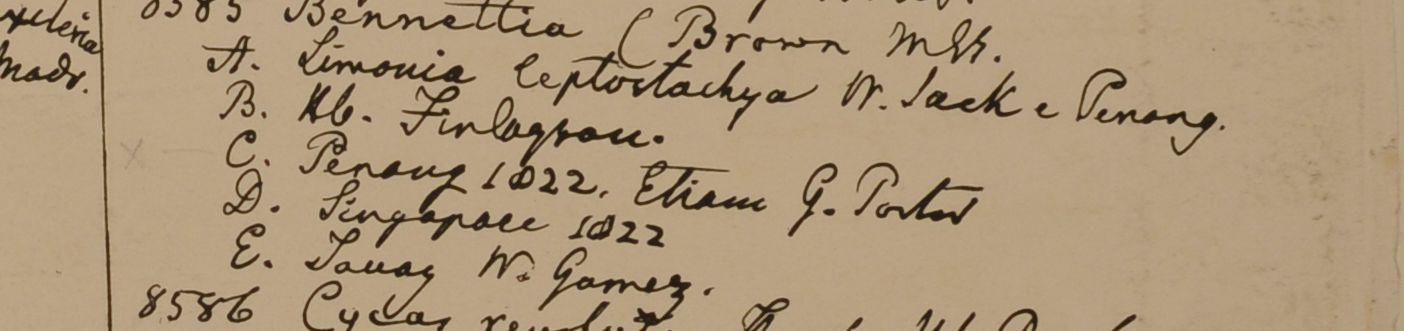 8585 Bennettia (Brown MSS.
Madr.
A. Limonia leptostachya W. Jack e Penang.
B. Hb. Finlayson.
C. Penang 1822. Etiam G. Porter
D. Singapore 1822
E. Tavay W. Gomez.
8586 Cycas